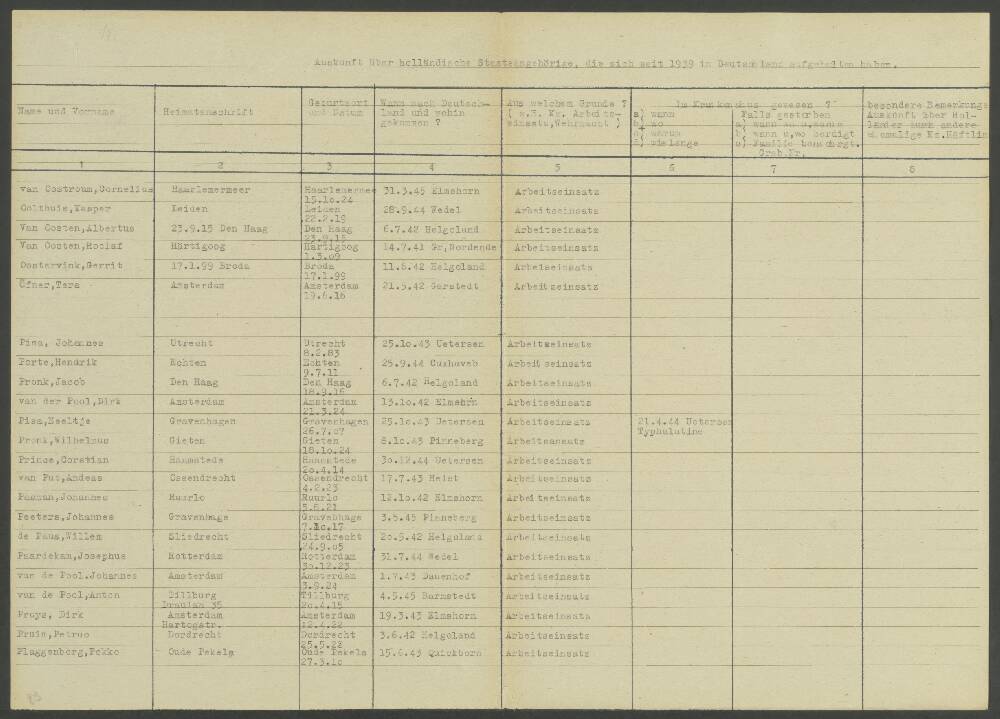 Auskunft über holländische Staatsangehörige, die sich seit 1939 in Deutschland aufgehalten haben.
Name und Vorname
Heimatanschrift
Geburtsort
und Datum
Wann nach Deutsch-
land und wohin
gekommen ?
Aus welchem Grunde ?
( z.B. Kz. Arbeits-
einsatz, Wehrmacht )
Im Krankenhaus gewesen ?
a) wann
b) wo
c) warum
d) wielange
Falls gestorben
a) wann
b) wann u,wo berdigt
c) Familie benachrgt.
Grab.Nr.
besondere Bemerkung
Auskunft über Hol-
länder auch andere
ehemalige Kz.Häftlin
1 2 3 4 5 6 7 8
van Oostroum,Cornelius Haarlemermeer Haarlemermee 31.3.45 Elmshorn Arbeitseinsatz
15.10.24
Oolthuis,Kasper Leiden Leiden 28.9.44 Wedel Arbeitseinsatz
22.2.19
Van Oosten,Albertus 23.9.15 Den Haag Den Haag 6.7.42 Helgoland Arbeitseinsatz
23.9.15
Van Oosten,Roelaf Härtigoog Härtigoog 14.7.41 Gr,Nordende Arbeitseinsatz
1.3.09
Oostervink,Gerrit 17.1.99 Breda Breda 11.6.42 Helgoland Arbeitseinsatz
17.1.99
Öfner,Tera Amsterdam Amsterdam 21.5.42 Garstedt Arbeitseinsatz
19.6.16
Pisa, Johannes Utrecht Utrecht 25.10.43 Uetersen Arbeitseinsatz
8.2.83
Porte,Hendrik Echten Echten 25.9.44 Cuxhaveb Arbeitseinsatz
9.7.11
Pronk,Jacob Den Haag Den Haag 6.7.42 Helgoland Arbeitseinsatz
18.9.16
van der Pool,Dirk Amsterdam Amsterdam 13.10.42 Elmshrn Arbeitseinsatz
21.3.24
Pisa,Neeltje Gravenhagen Gravenhagen 25.10.43 Uetersen Arbeitseinsatz 21.4.44 Uetersen
26.7.07 Typhulutine
Pronk,Wilhelmus Gieten Gieten 8.10.43 Pinneberg Arbeitsansatz
18.10.24
Prince,Corstian Haamstede Haamstede 30.12.44 Uetersen Arbeitseinsatz
20.4.14
van Put,Andeas Ossendrecht Ossendrecht 17.7.43 Heist Arbeitseinsatz
4.2.23
Pasman,Johannes Ruurlo Ruurlo 12.10.42 Elmshorn Arbeitseinsatz
5.6.21
Peeters,Johannes Gravenhage Gravenhage 3.5.45 Pinneberg Arbeitseinsatz
7.10.17
de Paus,Willem Sliedrecht Sliedrecht 20.5.42 Helgoland Arbeitseinsatz
24.9.05
Paardekam,Josephus Rotterdam Rotterdam 31.7.44 Wedel Arbeitseinsatz
30.12.23
van de Pool.Johannes Amsterdam Amsterdam 1.7.43 Dauenhof Arbeitseinsatz
3.9.24
van de Pool,Anton Tillburg Tillburg 4.5.45 Barmstedt Arbeitseinsatz
35 20.4.15
Pruys, Dirk Amsterdam Amsterdam 19.3.43 Elmshorn Arbeitseinsatz
Hartogstr. 12.4.22
Pruis,Petrus Dordrecht Dordrecht 3.6.42 Helgoland Arbeitseinsatz
25.5.22
Plaggenborg,Fokko Oude Pekela Oude Pekela 15.6.43 Quickborn Arbeitseinsatz
27.3.10